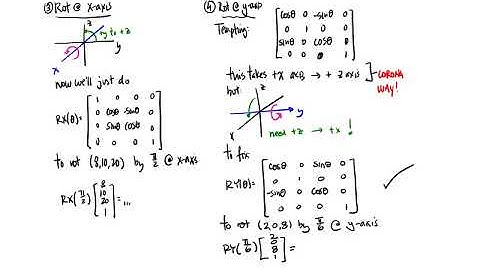 ③ Rot @ x-axis
z
+y to +z
y
x
now we'll just do
RX(θ)= [ 1 0 0 0
0 cosθ -sinθ 0
0 sinθ cosθ 0
0 0 0 1 ]
to rot (8,10,20) by π/2 @ x-axis
RX(π/2) [ 8
10
20
1 ] = ...
④ Rot @ y-axis
Tempting:
[ cosθ 0 -sinθ 0
0 1 0 0
sinθ 0 cosθ 0
0 0 0 1 ]
this takes +x axis → + z axis
WRONG
WAY!
but
z
y
x
need +z → +x !
to fix:
RY(θ)= [ cosθ 0 sinθ 0
0 1 0 0
-sinθ 0 cosθ 0
0 0 0 1 ]
to rot (2,0,8) by π/6 @ y-axis
RY(π/6) [ 2
0
8
1 ] =